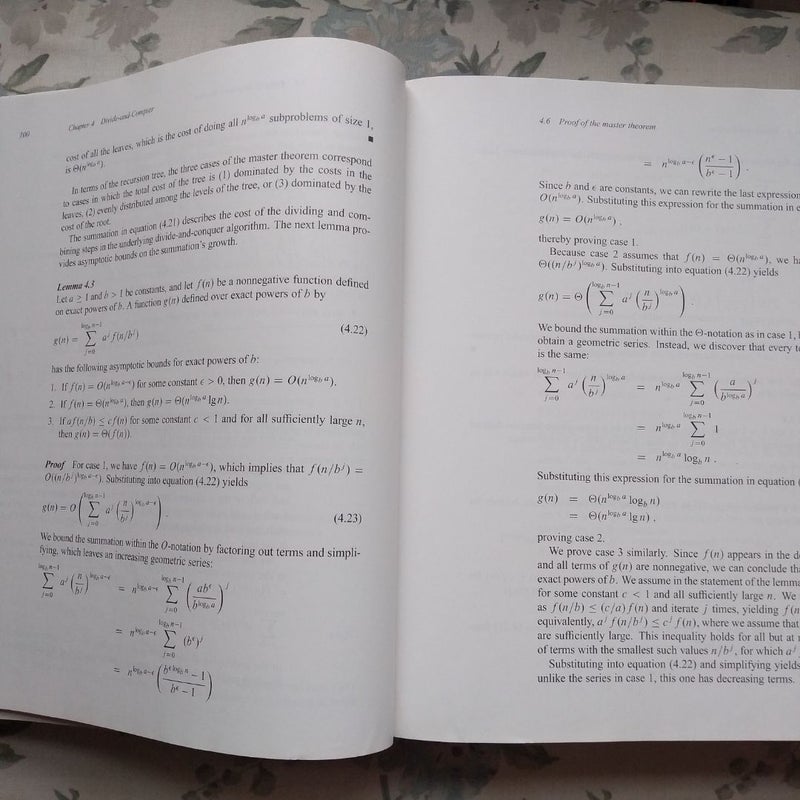 100 Chapter 4 Divide-and-Conquer
cost of all the leaves, which is the cost of doing all n^{log_b a} subproblems of size 1,
is Θ(n^{log_b a}). ■
In terms of the recursion tree, the three cases of the master theorem correspond
to cases in which the total cost of the tree is (1) dominated by the costs in the
leaves, (2) evenly distributed among the levels of the tree, or (3) dominated by the
cost of the root.
The summation in equation (4.21) describes the cost of the dividing and com-
bining steps in the underlying divide-and-conquer algorithm. The next lemma pro-
vides asymptotic bounds on the summation's growth.
Lemma 4.3
Let a ≥ 1 and b > 1 be constants, and let f(n) be a nonnegative function defined
on exact powers of b. A function g(n) defined over exact powers of b by
g(n) = ∑_{j=0}^{log_b n−1} a^j f(n/b^j) (4.22)
has the following asymptotic bounds for exact powers of b:
1. If f(n) = O(n^{log_b a−ϵ}) for some constant ϵ > 0, then g(n) = O(n^{log_b a}).
2. If f(n) = Θ(n^{log_b a}), then g(n) = Θ(n^{log_b a} lg n).
3. If af(n/b) ≤ cf(n) for some constant c < 1 and for all sufficiently large n,
then g(n) = Θ(f(n)).
Proof For case 1, we have f(n) = O(n^{log_b a−ϵ}), which implies that f(n/b^j) =
O((n/b^j)^{log_b a−ϵ}). Substituting into equation (4.22) yields
g(n) = O(∑_{j=0}^{log_b n−1} a^j (n/b^j)^{log_b a−ϵ}) . (4.23)
We bound the summation within the O-notation by factoring out terms and simpli-
fying, which leaves an increasing geometric series:
∑_{j=0}^{log_b n−1} a^j (n/b^j)^{log_b a−ϵ} = n^{log_b a−ϵ} ∑_{j=0}^{log_b n−1} (ab^ϵ/b^{log_b a})^j
= n^{log_b a−ϵ} ∑_{j=0}^{log_b n−1} (b^ϵ)^j
= n^{log_b a−ϵ} ((b^{ϵ log_b n} − 1)/(b^ϵ − 1))
4.6 Proof of the master theorem
= n^{log_b a−ϵ} ((n^ϵ − 1)/(b^ϵ − 1)) .
Since b and ϵ are constants, we can rewrite the last expression
O(n^{log_b a}). Substituting this expression for the summation in
g(n) = O(n^{log_b a}) ,
thereby proving case 1.
Because case 2 assumes that f(n) = Θ(n^{log_b a}), we
Θ((n/b^j)^{log_b a}). Substituting into equation (4.22) yields
g(n) = Θ(∑_{j=0}^{log_b n−1} a^j (n/b^j)^{log_b a}) .
We bound the summation within the Θ-notation as in case 1,
obtain a geometric series. Instead, we discover that every
is the same:
∑_{j=0}^{log_b n−1} a^j (n/b^j)^{log_b a} = n^{log_b a} ∑_{j=0}^{log_b n−1} (a/b^{log_b a})^j
= n^{log_b a} ∑_{j=0}^{log_b n−1} 1
= n^{log_b a} log_b n .
Substituting this expression for the summation in equation
g(n) = Θ(n^{log_b a} log_b n)
= Θ(n^{log_b a} lg n) ,
proving case 2.
We prove case 3 similarly. Since f(n) appears in the
and all terms of g(n) are nonnegative, we can conclude
exact powers of b. We assume in the statement of the lemma
for some constant c < 1 and all sufficiently large n. We
as f(n/b) ≤ (c/a)f(n) and iterate j times, yielding
equivalently, a^j f(n/b^j) ≤ c^j f(n), where we assume that
are sufficiently large. This inequality holds for all but at
of terms with the smallest such values n/b^j, for which a^j
Substituting into equation (4.22) and simplifying yields
unlike the series in case 1, this one has decreasing terms.